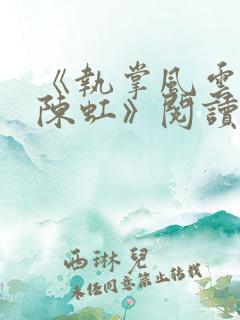 《執掌風雲
陳虹》閱讀
西琳兒
未經同意禁止轉載